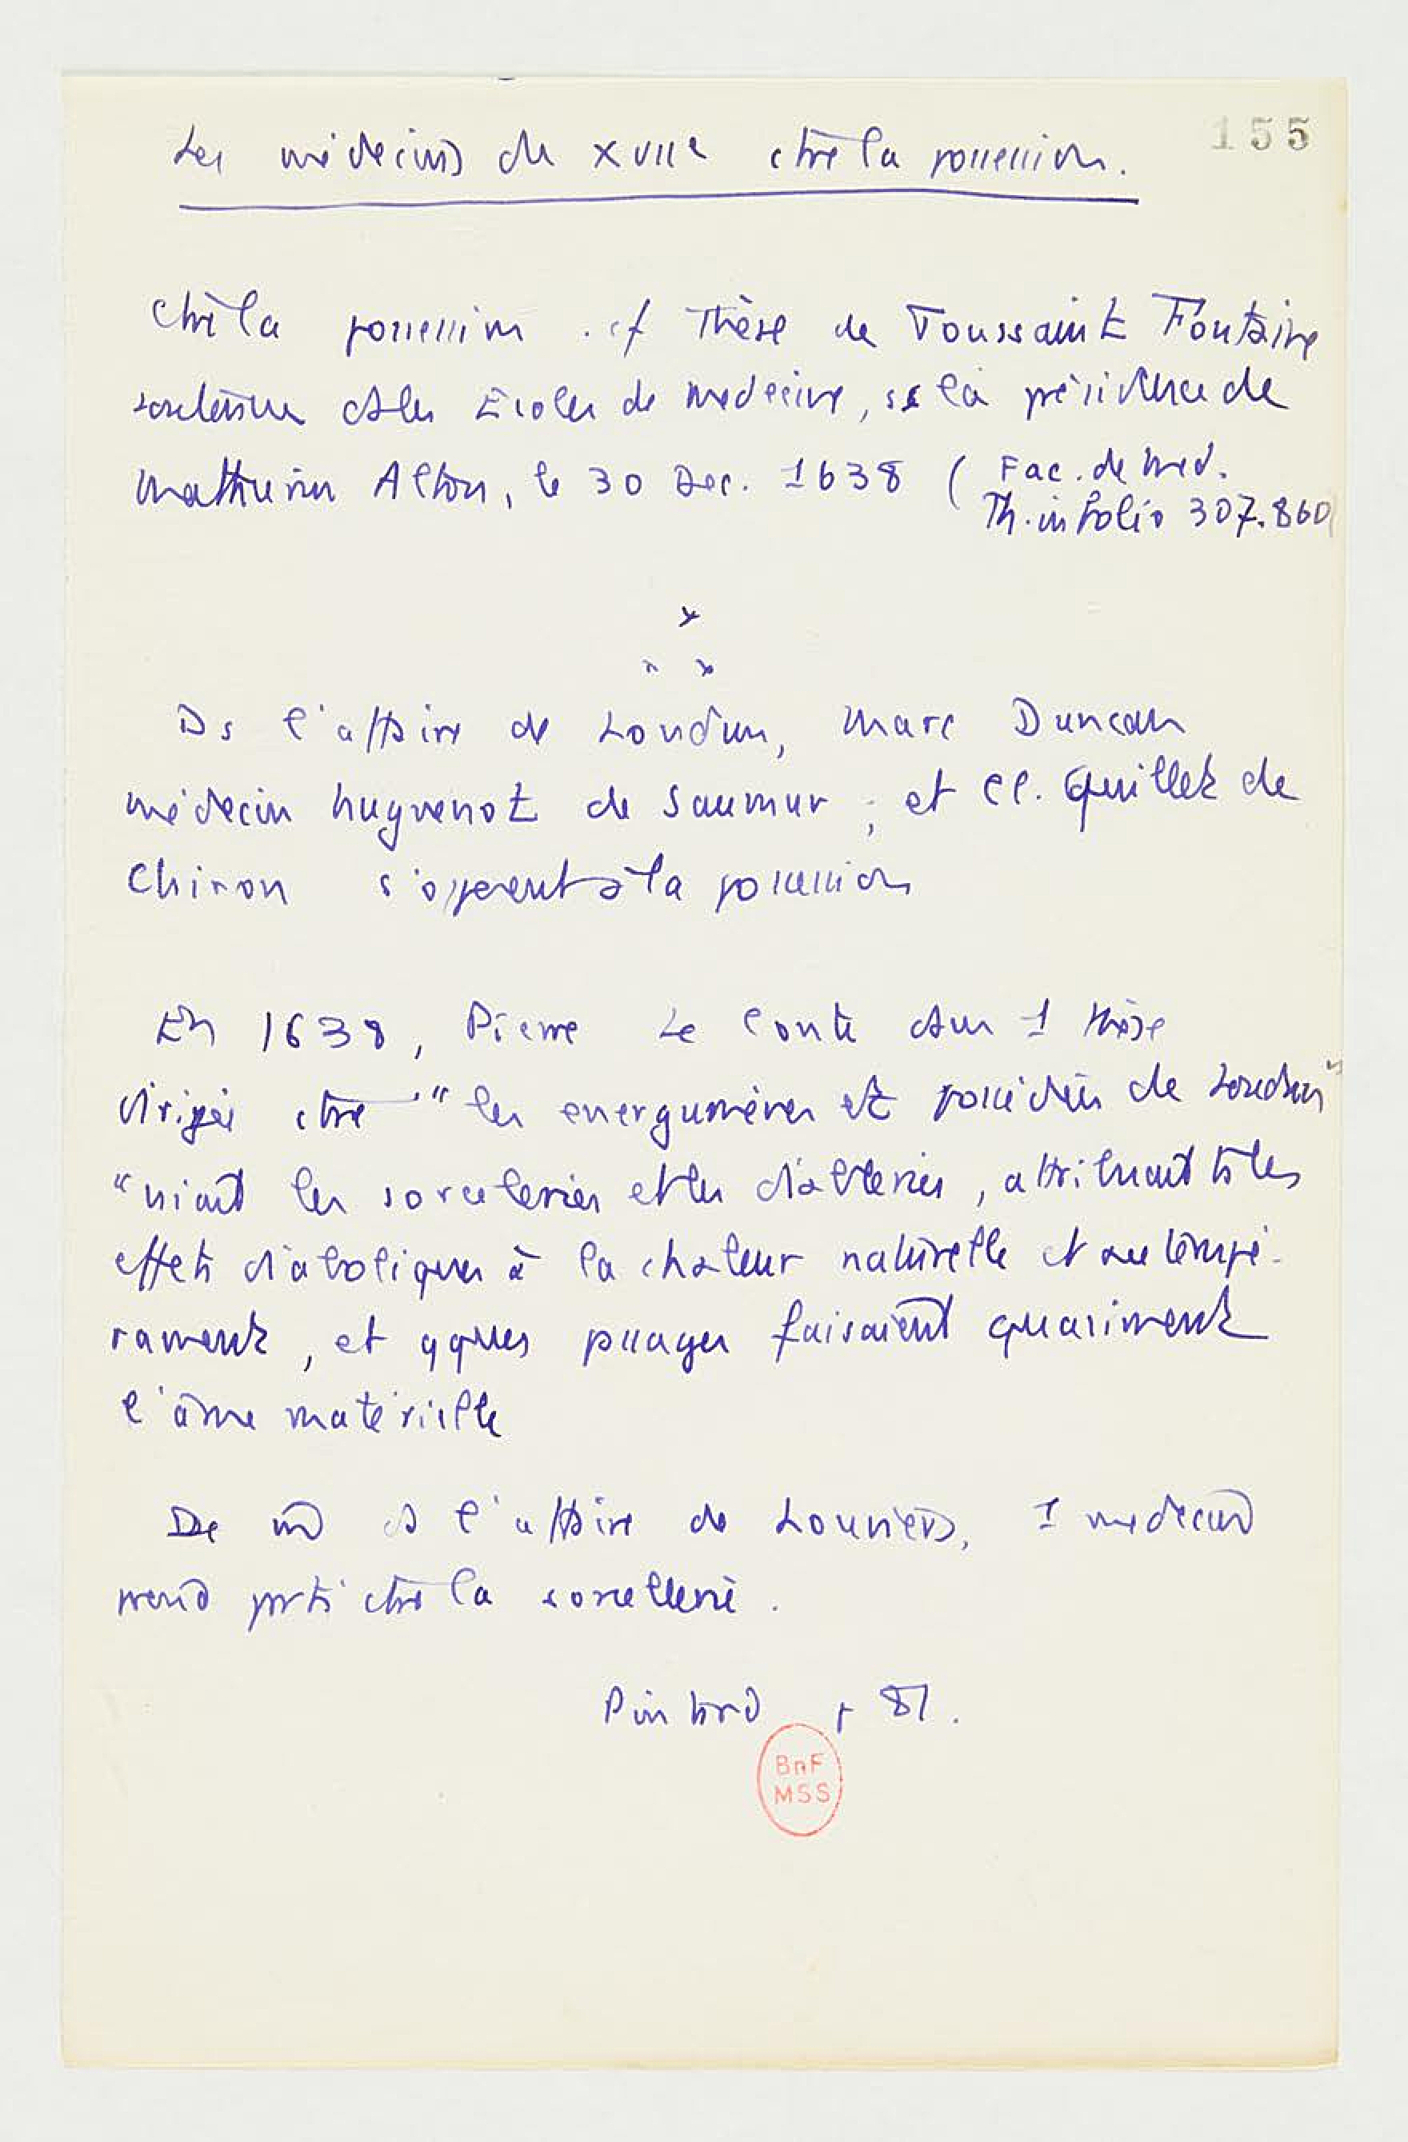 155
Les médecins du XVIIe ctre la possession.
Ctre la possession . cf Thèse de Toussaint Fontaine
soutenue ds les Ecoles de medecine, ss la présidence de
Mathurin Alton, le 30 Dec. 1638 ( Fac. de Med.
Th. in folio 307.860
Ds l'affaire de Loudun, Marc Duncan
médecin huguenot de Saumur ; et Cl. Quillet de
Chinon s'opposent à la possession
En 1638, Pierre Le Conte ds un 1 thèse
dirigée ctre "les energumènes et possédées de Loudun"
"niait les sorceleries et les diableries, attribuait ts les
effets diaboliques à la chaleur naturelle et au tempé-
rament, et qques passages faisaient quasiment
l'âme matérielle
De m ds l'affaire de Louviers, 1 medecin
prend parti ctre la sorcellerie.
Pintard p 81.
BnF
MSS